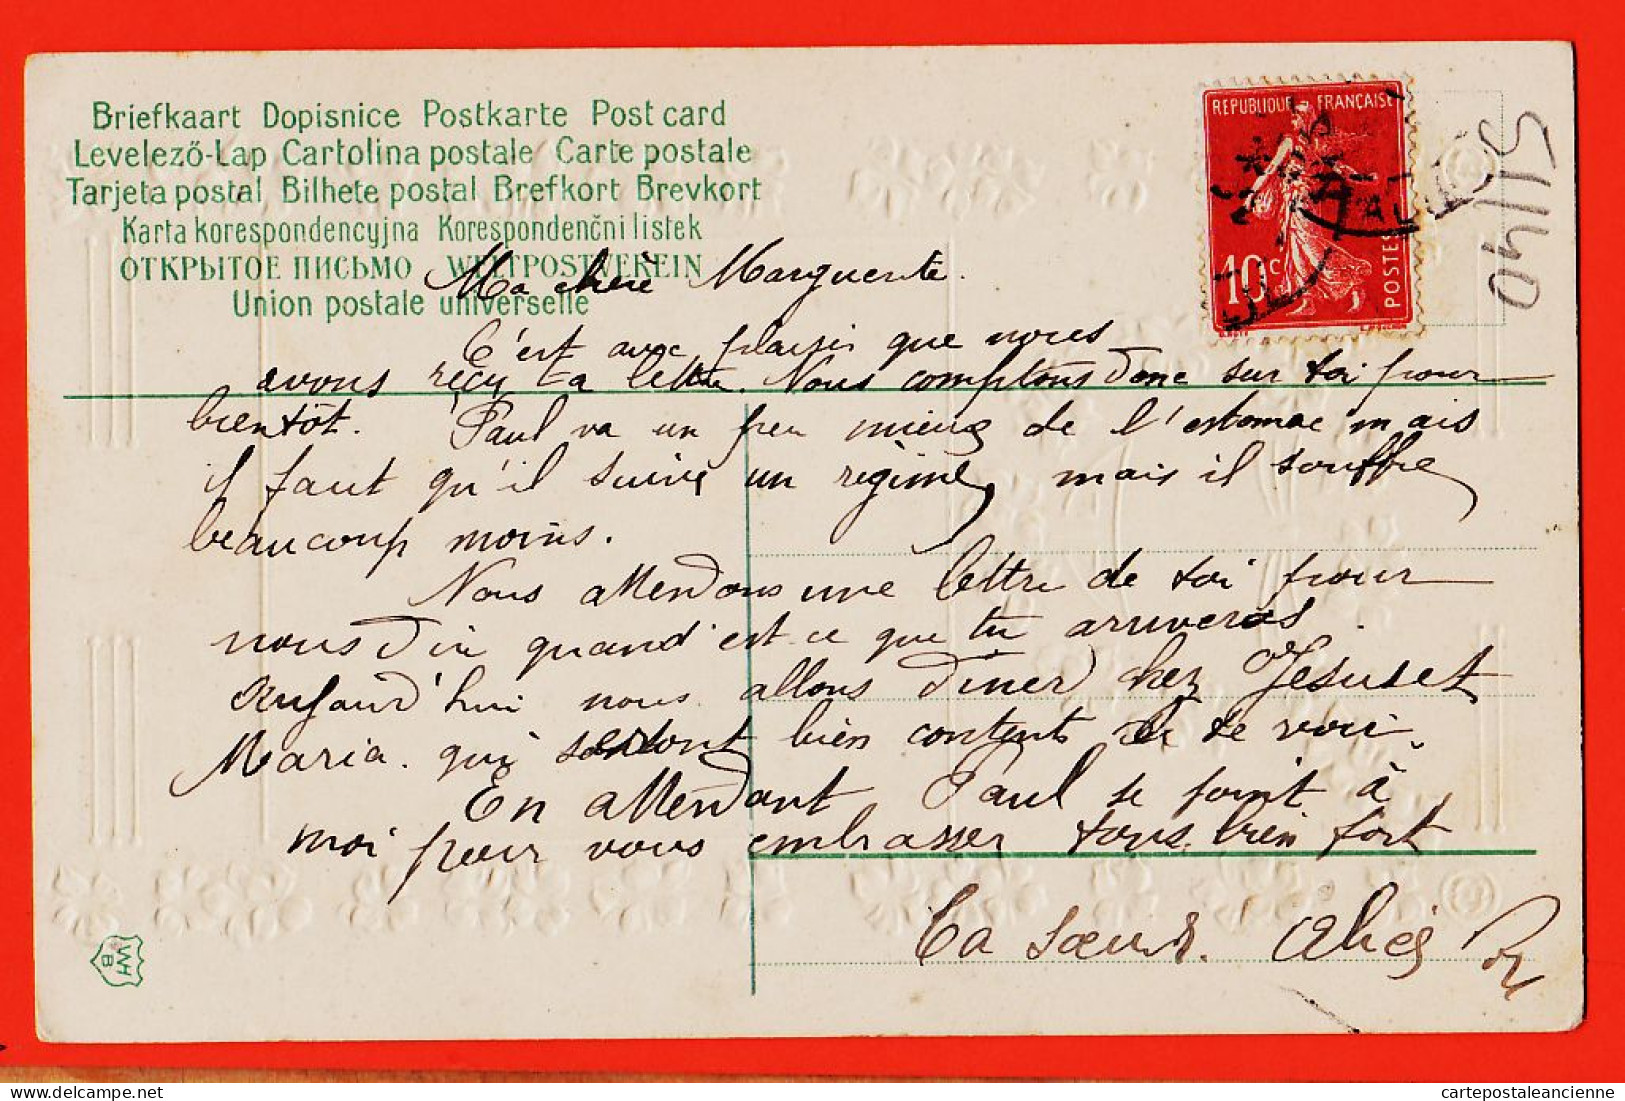 Briefkaart Dopisnice Postkarte Post card
Levelező-Lap Cartolina postale Carte postale
Tarjeta postal Bilhete postal Brefkort Brevkort
Karta korespondencyjna Korespondenčni listek
ОТКРЫТОЕ ПИСЬМО WELTPOSTVEREIN
Union postale universelle
REPUBLIQUE FRANÇAISE
10 c
POSTES
51140
Ma chere Marguerite.
C'est avec plaisir que nous
avons reçu ta lettre. Nous comptons donc sur toi pour
bientôt. Paul va un peu mieux de l'estomac mais
il faut qu'il suive un régime, mais il souffre
beaucoup moins.
Nous attendons une lettre de toi pour
nous dire quand est-ce que tu arriveras.
Aujourd'hui nous allons diner chez Jesus et
Maria. qui seront bien contents de te voir.
En attendant Paul se joint à
moi pour vous embrasser tous bien fort
Ta sœur.
WH
B
cartepostaleancienne